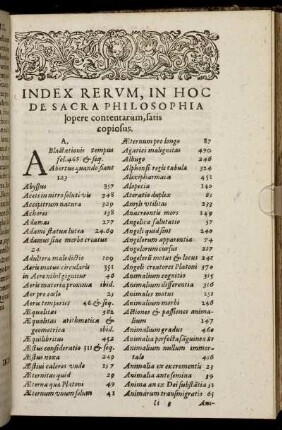 INDEX RERVM, IN HOC
DE SACRA PHILOSOPHIA
opere contentarum, satis
copiosus.
A,
ABlactationis tempus
fol. 465 & seq.
Abortus quando fiant
123
Abyssus 357
Aceti in vitro soluti vis 348
Accipitrum natura 309
Achores 138
Adamas 277
Adami statura lutea 24.60
Adamus sine morbo creatus
24
Adultera maledictio 109
Aeris motus circularis 351
in Aere nihil gignitur 46
Aeris materia proxima ibid.
Aer pro caelo 25
Aeris temperies 46 & seq.
Æqualitas 382
Æqualitas arithmetica &
geometrica ibid.
Æquilibritas 452
Æstus consideratio 311 & seq.
Æstus noxa 249
Æstiui calores unde 257
Æternitas quid 29
Æterna qua Platoni 49
Æternum unum solum 41
Æternum pro longo 87
Agarici malignitas 470
Albugo 246
Alphonsi regis tabula 324
Alexipharmaca 452
Alopecia 140
Alteratio duplex 83
Amyli vtilitas 233
Anacreontis mors 149
Angelica salutatio 57
Angeli quid sint 240
Angelorum apparentia 74
Angelorum cursus 217
Angelorū motus & locus 242
Angeli creatores Platoni 370
Animalium cognitio 315
Animalium differentia 316
Animales motus 251
Animalium morbi 246
Actiones & passiones animalium
147
Animalium gradus 460
Animalia perfecta sāguineα 81
Animalium nullum immortale
36
Animalia ex excrementis 23
Animalia ante semina 39
Anima an ex Dei substātia 52
Animarum transmigratio 65
li 8 Ani-